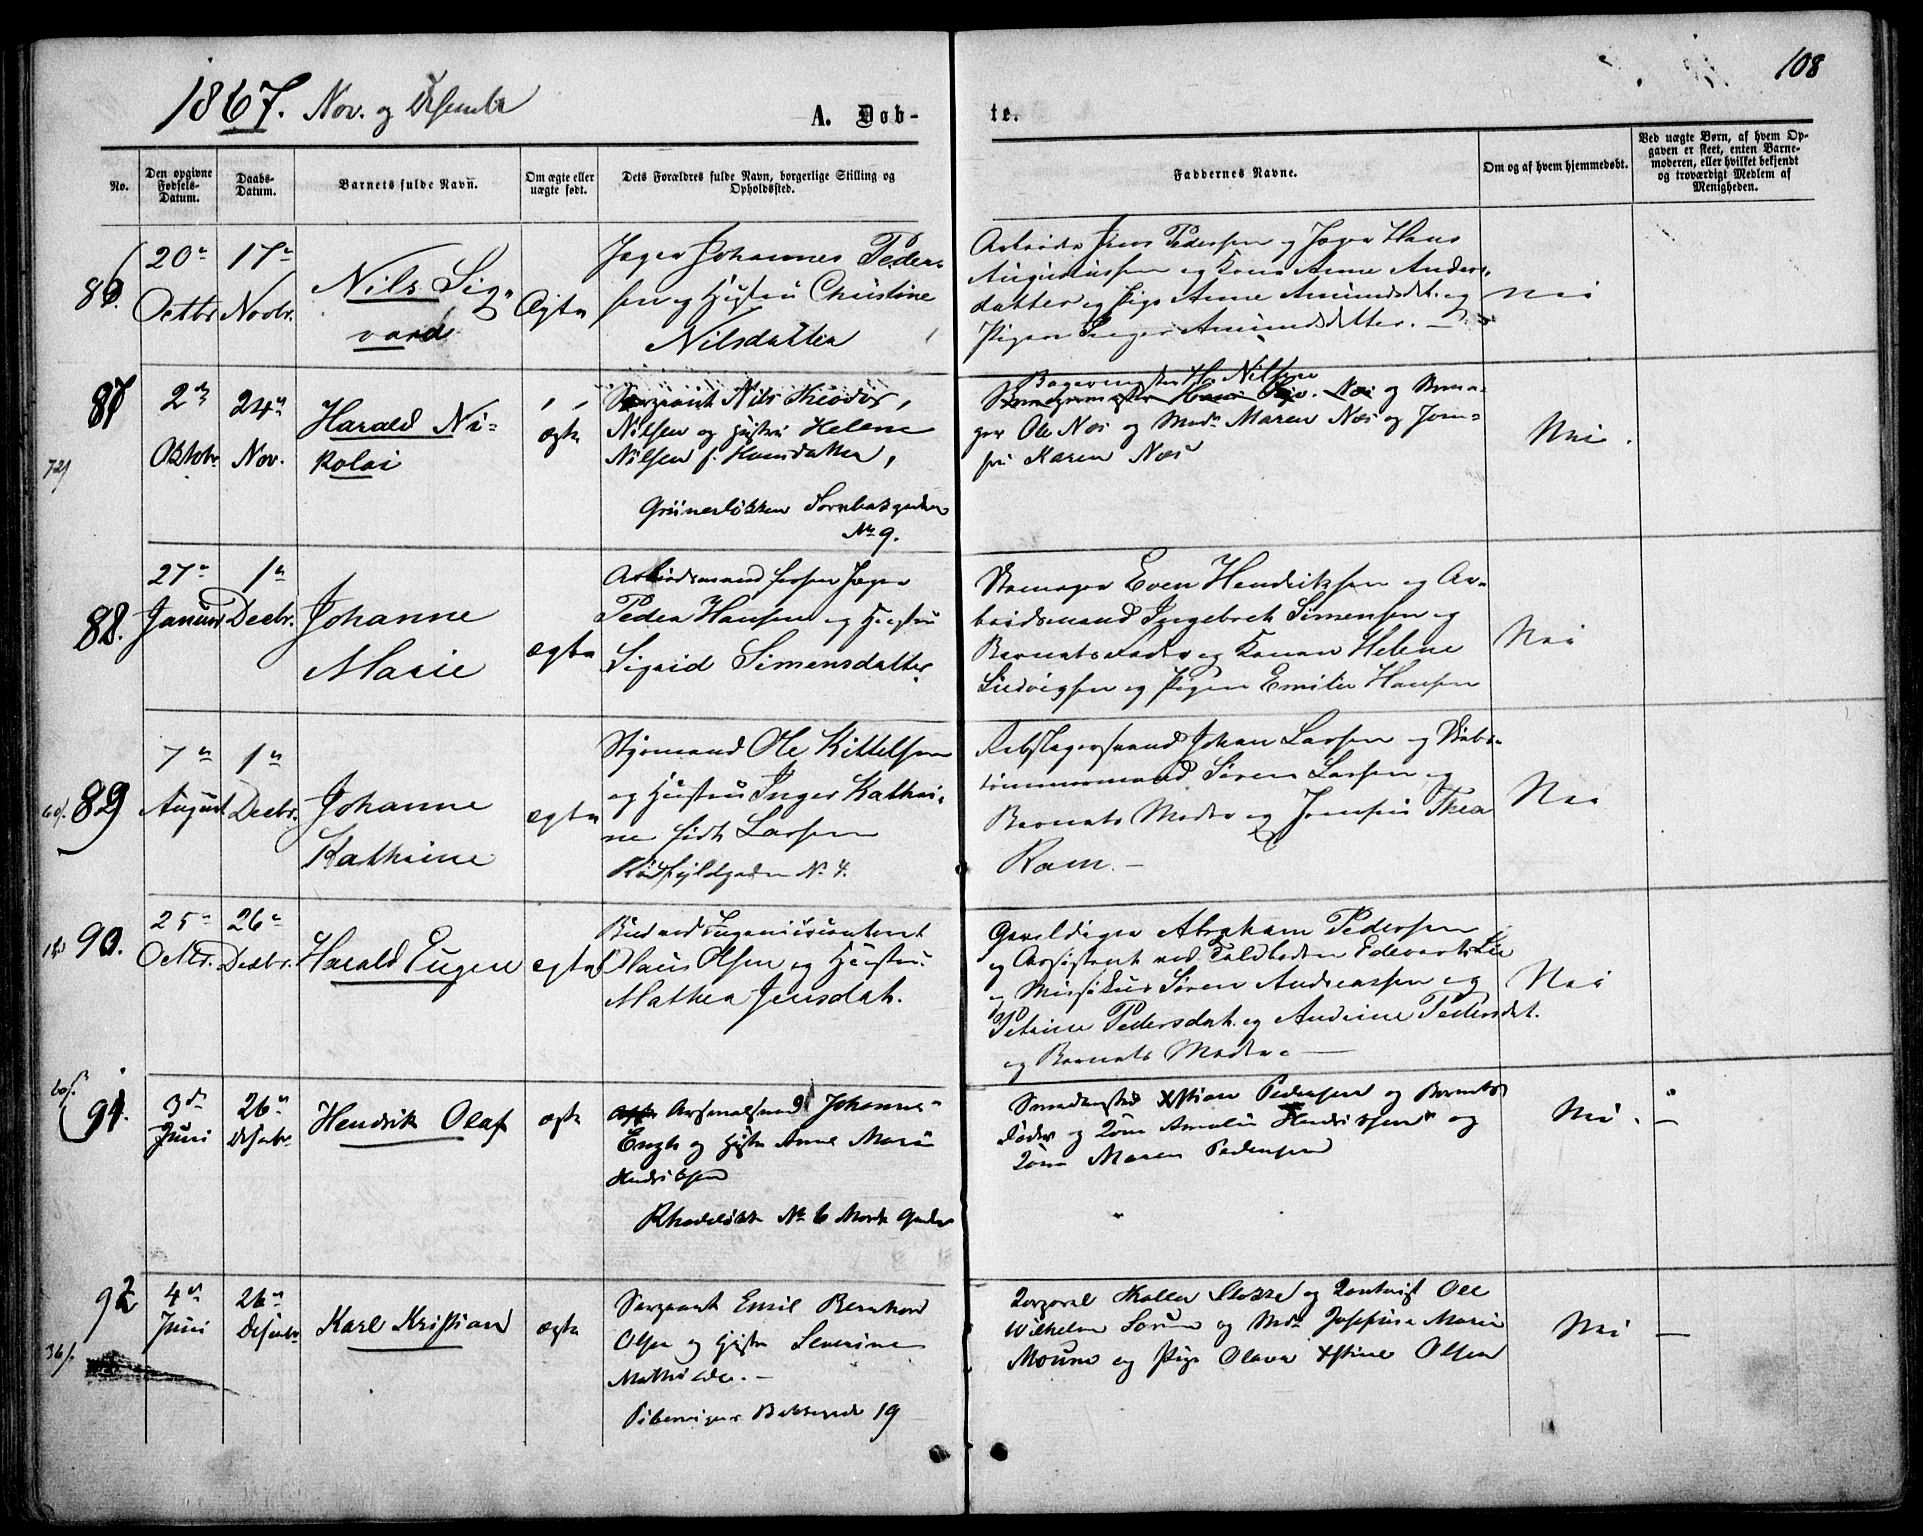 108
1867. Nov. og Desember
A. Døb-
te.
No.
Den opgivne Fødsels-Datum.
Daabs-Datum.
Barnets fulde Navn.
Om ægte eller uægte født.
Dets Forældres fulde Navn, borgerlige Stilling og Opholdssted.
Faddernes Navne.
Om og af hvem hjemmedøbt.
Ved uægte Børn, af hvem Opgaven er skeet, enten Barnemoderen, eller hvilket bekjendt og troværdigt Medlem af Menigheden.
86.
20de
Octbr
17de
Novbr.
Nils Sig-
vard
Ægte
Jæger Johannes Peder-
sen og Hustru Christine
Nilsdatter
Jens Pedersen og Jæger Hans
Augustussen og Kone Anne Anders-
datter og Pige Anne Amundsdt. og
Pigen Amundsdatter. —
Nei
87
2den
Oktobr
24de
Nov.
Harald Ni-
kolai
ægte
Sergeant Nils
Nilsen og Hustru Helene
Nilsen f. Hansdatter,
Grünerløkken
No 9.
Bagermester H. Nilsen
og Stoma-
ger Ole Næs og Mad. Maren Næs og Jom-
fru Karen Næs
Nei.
72/
88.
27de
Januar
1ste
Decbr.
Johanne
Marie
ægte
Arbeidsmand Jæger
Peder Hansen og Hustru
Sigrid Simensdatter
Skomager Even Hendriksen og Ar-
beidsmand Ingebret Simensen og
Barnets Fader og Konen Helene
Ludvigsen og Pigen Emilie Hansen
Nei
60/.
89
7de
August
1ste
Decbr.
Johanne
Kathrine
ægte
Styrmand Ole Kittelsen
og Hustru Inger Kathri-
ne født Larsen
No 4.
Rebslagersvend Johan Larsen og Skibs-
tømmermand Søren Larsen og
Barnets Moder og Jomfru Thea
Ram. —
Nei
90.
25de
Octbr.
26de
Decbr.
Harald Eugen
ægte
Bud ved Ingenieurcontoret
Olaus Olsen og Hustru
Mathea Jensdat.
Gevaldiger Abraham Pedersen
og Assistent ved Toldboden Edevart Lie
og Musikus Søren Andreassen og
Petrine Pedersdat. og Andrine Pedersdat.
og Barnets Moder. —
Nei
91.
3die
Juni
26de
Desebr.
Hendrik Olaf
ægte
Arsenalsmand Johannes
Engh og Hustru Anne Marie
Hendriksen
Rhodeløkk No 6
Xstian Pedersen og Barnets
Fader og Kone Amalie Hendriksen og
Kone Maren Pedersen
Nei.
—
92
4de
Juni
26de
Desebr.
Karl Kristian
ægte
Sergeant Emil Bernhard
Olsen og Hustru Severine
Mathilde. —
Pibervigen Bakkegade 19
Korporal
Wilhelm og Mad. Josephine Marie
og Pige Olava Xstine Olsen
Nei
—
36/.